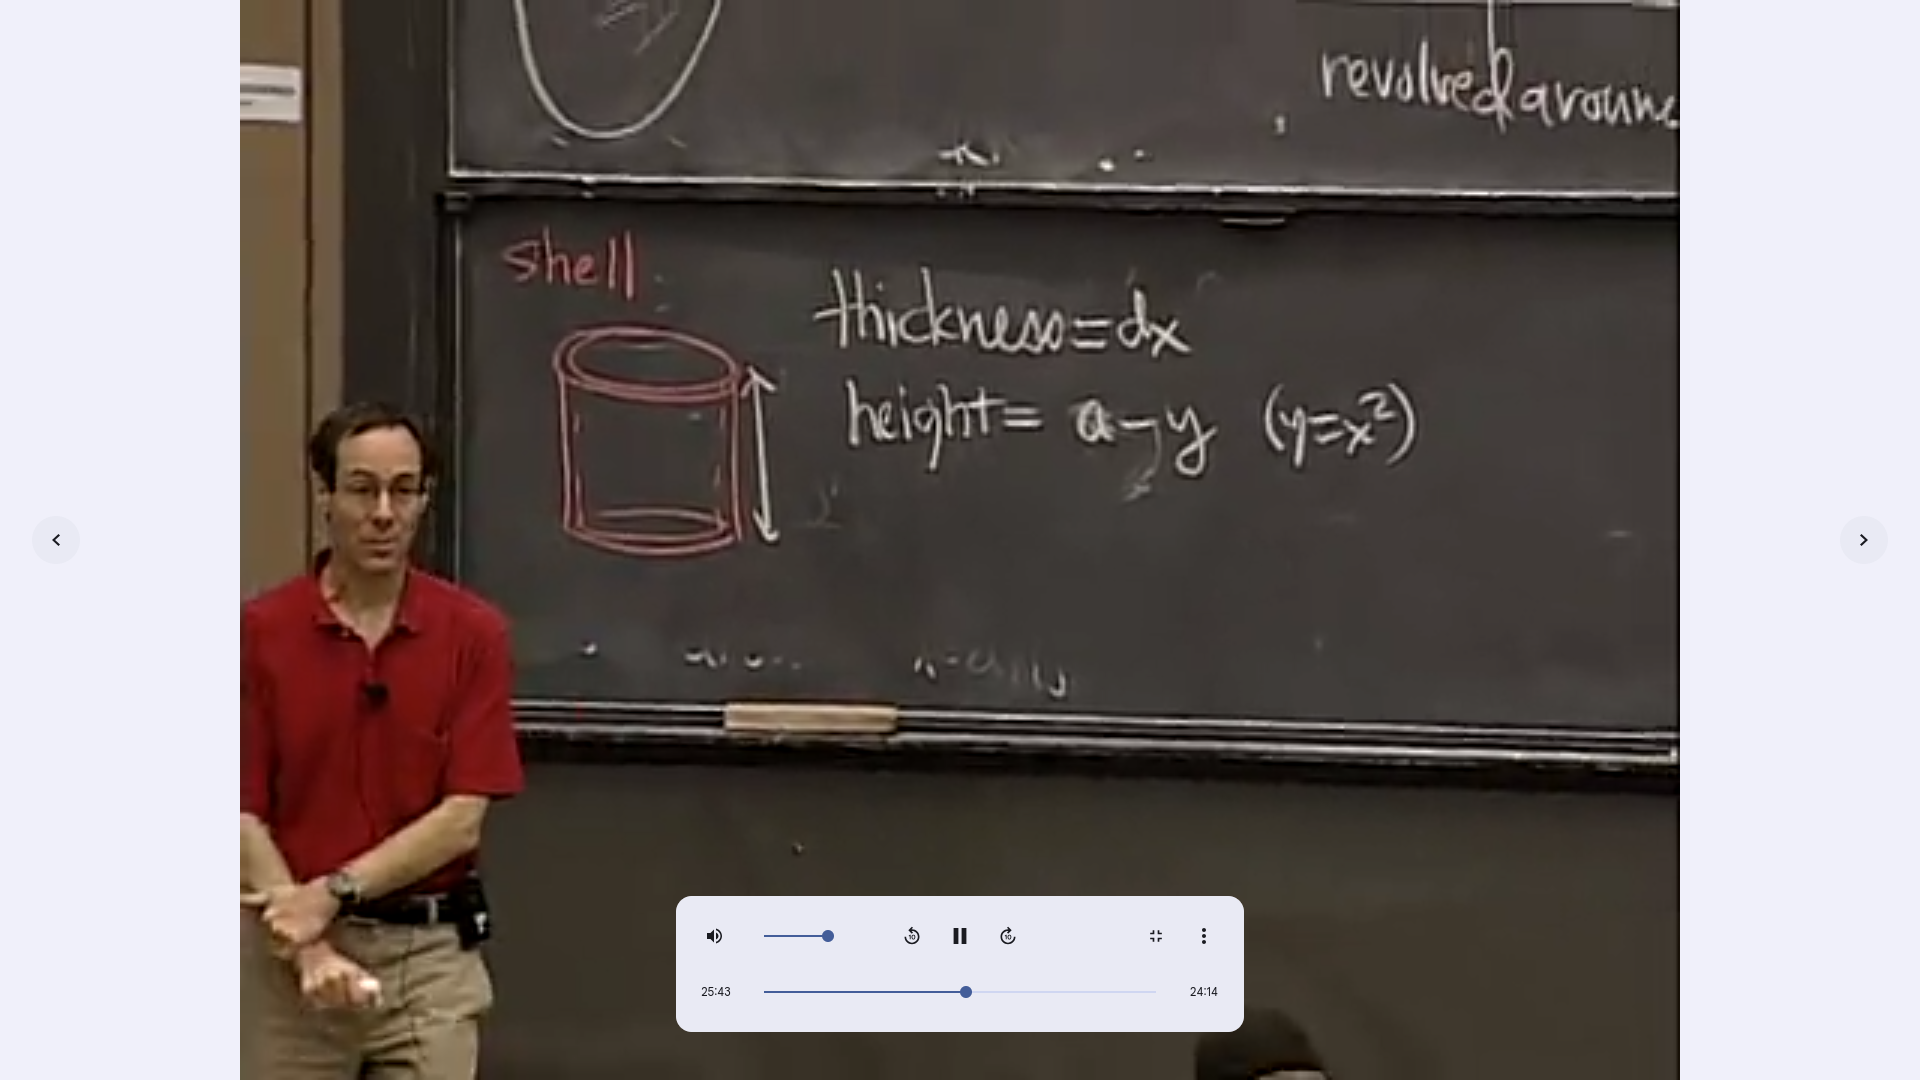 revolved aroun
shell
thickness = dx
height = a - y (y = x²)
10
10
25:43
24:14